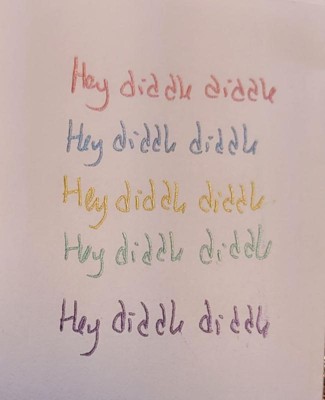 Hey diddle diddle
Hey diddle diddle
Hey diddle diddle
Hey diddle diddle
Hey diddle diddle